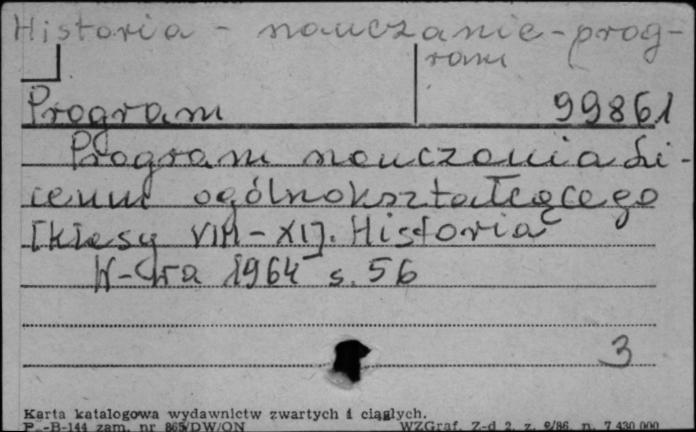 Historia - nauczanie - prog-
ram
Program 99861
Program nauczania Li-
ceum ogólnokształcącego
[klasy VIII-XI]. Historia
W-wa 1964 s. 56
3
Karta katalogowa wydawnictw zwartych i ciągłych.
P. -B-144 zam. nr 865/DW/ON WZGraf. Z-d 2, z. 2/86, n. 7 430 000